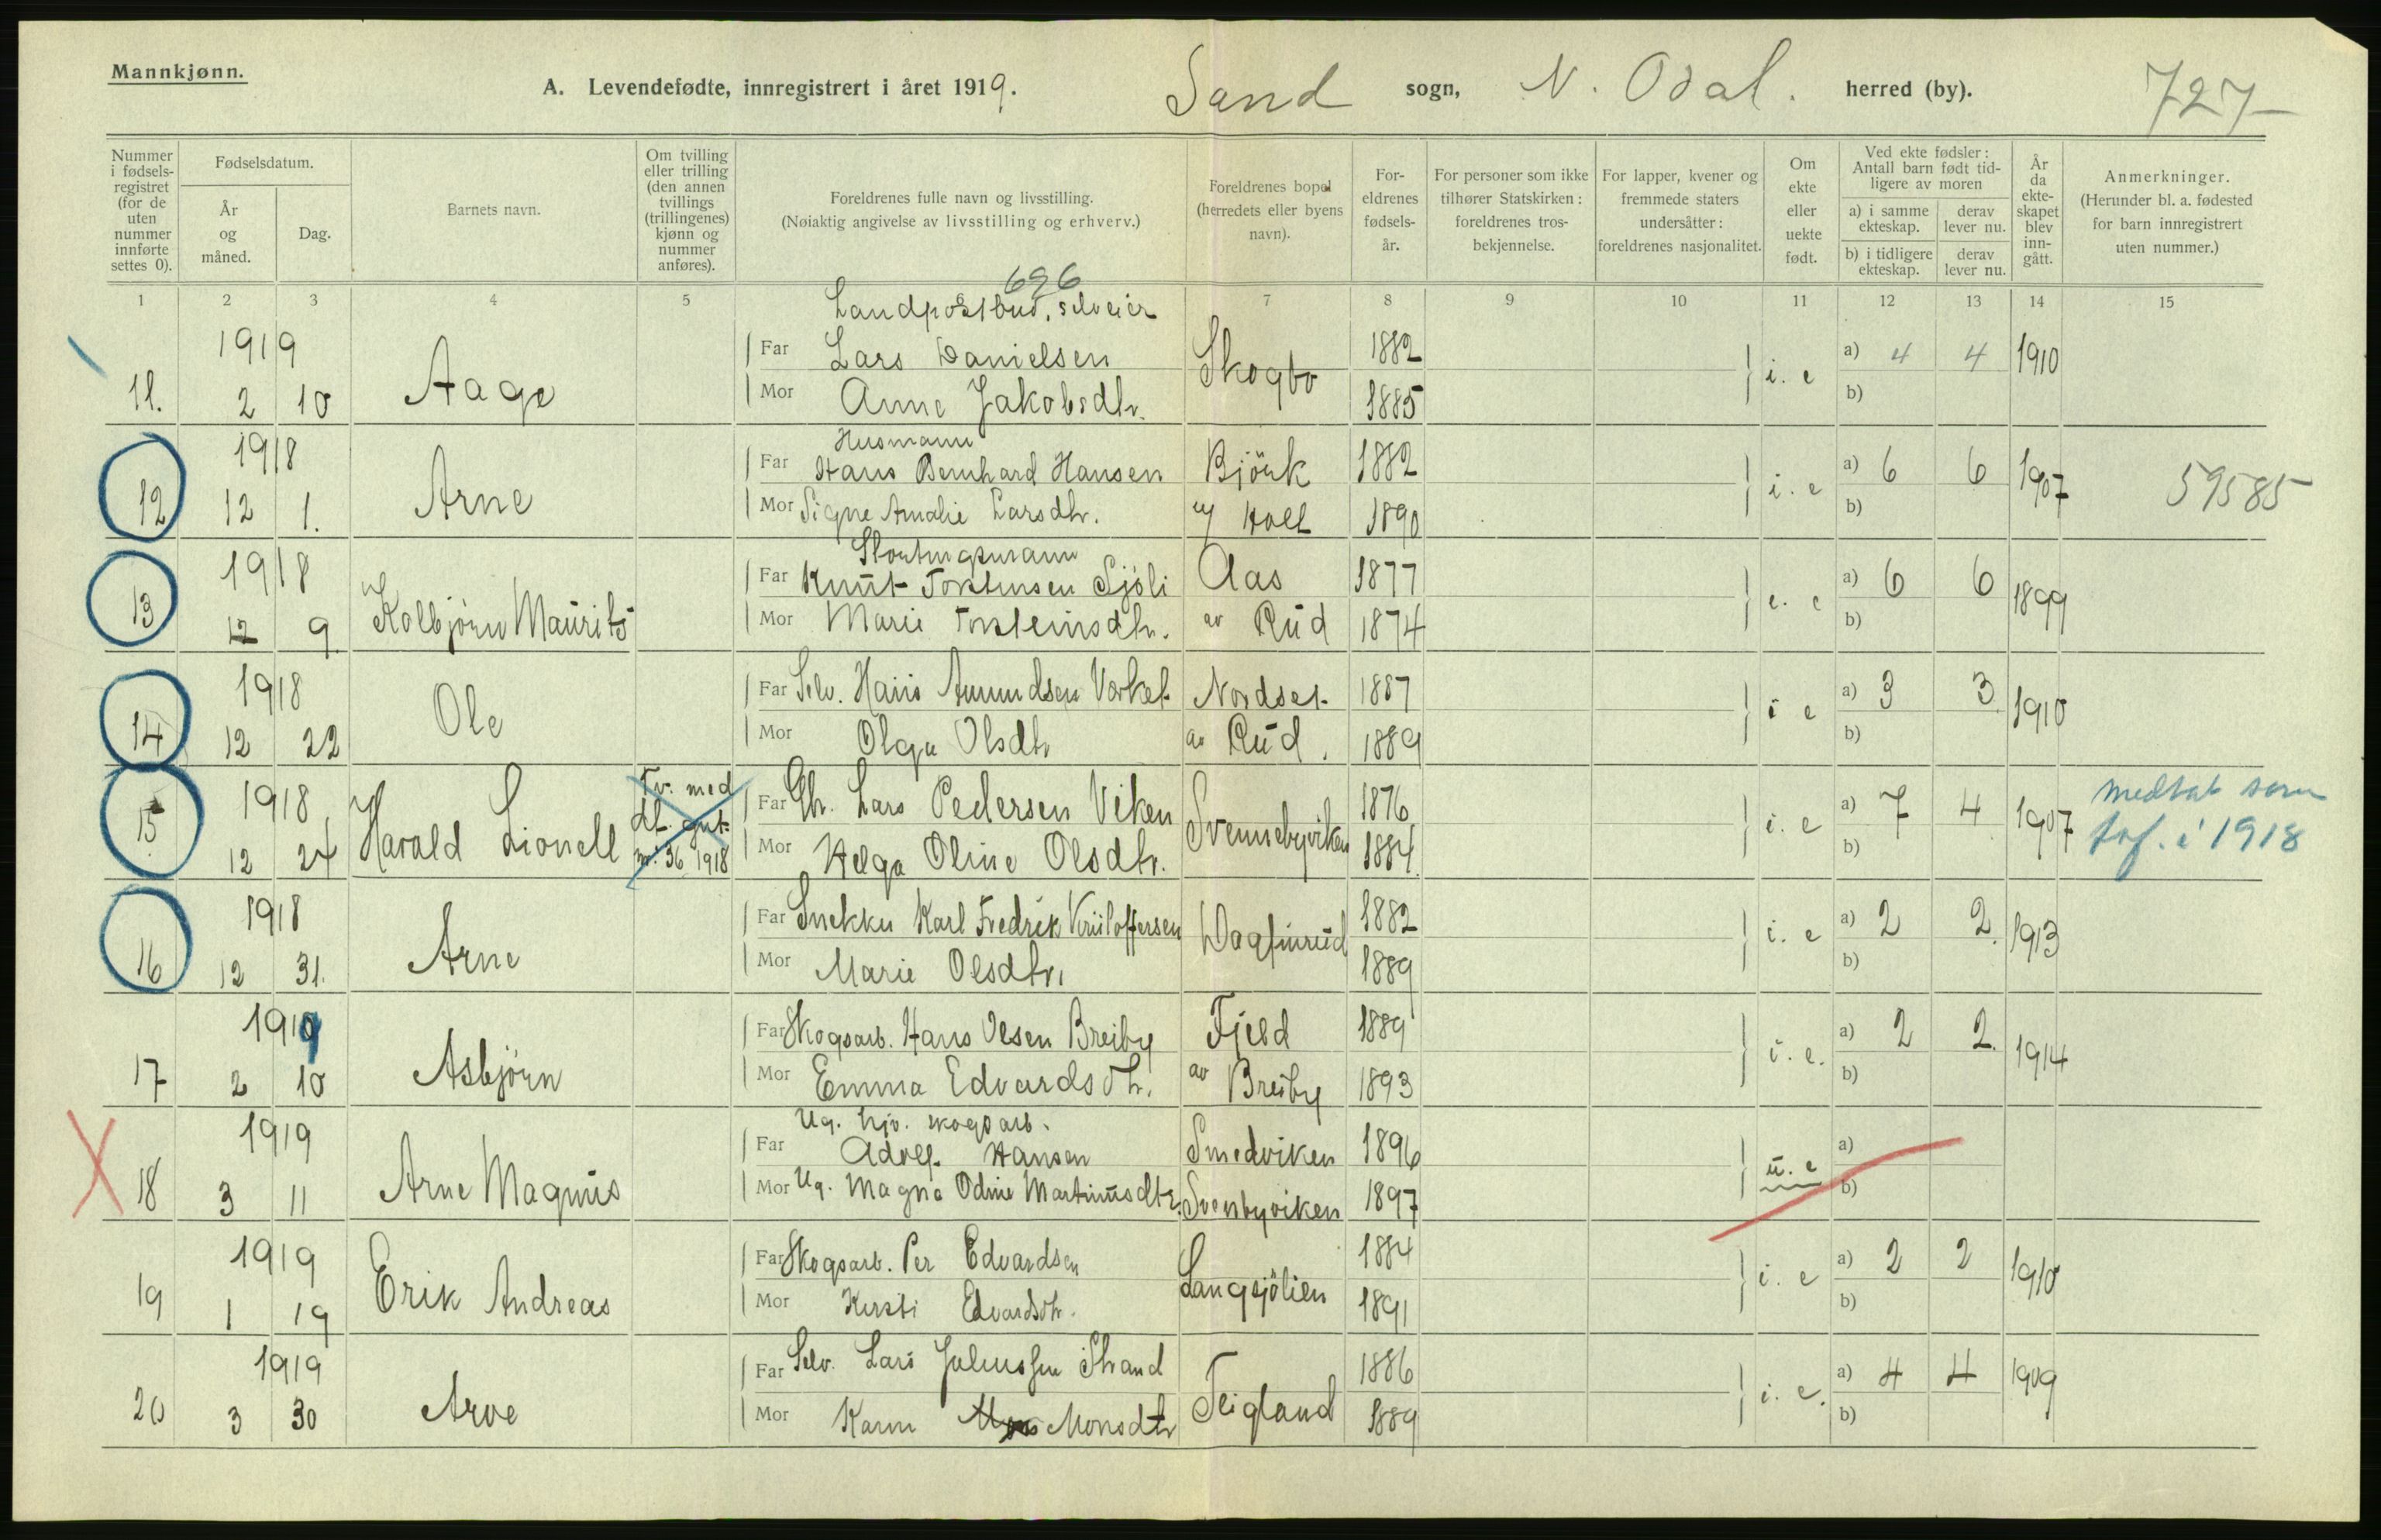 Mannkjønn.
A. Levendefødte, innregistrert i året 1919. Sand sogn, N. Odal. herred (by). 727
Nummer i fødselsregistret (for de uten nummer innførte settes 0).
Fødselsdatum.
År og måned.
Dag.
Barnets navn.
Om tvilling eller trilling (den annen tvillings (trillingenes) kjønn og nummer anføres).
Foreldrenes fulle navn og livsstilling.
(Nøiaktig angivelse av livsstilling og erhverv.)
Foreldrenes bopel (herredets eller byens navn).
Foreldrenes fødselsår.
For personer som ikke tilhører Statskirken: foreldrenes trosbekjennelse.
For lapper, kvener og fremmede staters undersåtter: foreldrenes nasjonalitet.
Om ekte eller uekte født.
Ved ekte fødsler: Antall barn født tidligere av moren
a) i samme ekteskap. derav lever nu.
b) i tidligere ekteskap. derav lever nu.
År da ekteskapet blev inngått.
Anmerkninger.
(Herunder bl. a. fødested for barn innregistrert uten nummer.)
1 2 3 4 5 696 7 8 9 10 11 12 13 14 15
Landpostbud, selveier
1919 Far Lars Danielsen Skogbo 1882 i. e a) 4 4 1910
11. 2 10 Aage Mor Anne Jakobsdtr. 1885 b)
Husmann
1918 Far Hans Bernhard Hansen Björk 1882 i. e a) 6 6 1907 59585
12 12 1. Arne Mor Signe Amalie Larsdtr. u/ Holt 1890 b)
Stortingsmann
1918 Far Knut Torstensen Sjöli Aas 1877 e. e a) 6 6 1899
13 12 9. Kolbjörn Maurits Mor Marie Torsteinsdtr. av Rud 1874 b)
1918 Far Selv. Hans Amundsen Nordset 1887 i e a) 3 3 1910
14 12 22 Ole Mor Olga Olsdtr av Rud. 1889 b)
1918 Tv. med df. gut. nr. 36 1918 Far Gbr. Lars Pedersen Viken Svennebyviken 1876 i. e a) 7 4 1907 medtat som tvf. i 1918
15 12 24 Harald Lionell Mor Helga Oline Olsdtr. 1884 b)
1918 Far Snekker Karl Fredrik Kristoffersen Dagfinrud 1882 i. e a) 2 2. 1913
16 12 31. Arne Mor Marie Olsdtr. 1889 b)
1919 Far Skogsarb. Hans Olsen Breiby Fjeld 1889 i. e. a) 2 2. 1914
17 2 10 Asbjörn Mor Emma Edvardsdtr. av Breiby 1893 b)
Ug. hjv. skogsarb.
1919 Far Adolf Hansen Smedviken 1896 u. e a)
18 3 11 Arne Magnus Mor Ug. Magna Odine Martinusdtr. Svenbyviken 1897 b)
1919 Far Skogsarb. Per Edvardsen Langsjölien 1884 i. e a) 2 2 1910
19 1 19 Erik Andreas Mor Kirsti Edvardsdtr. 1891 b)
1919 Far Selv. Lars Juliussen Strand Teigland 1886 i. e. a) 4 4 1909
20 3 30 Arve Mor Karen Monsdtr 1889 b)